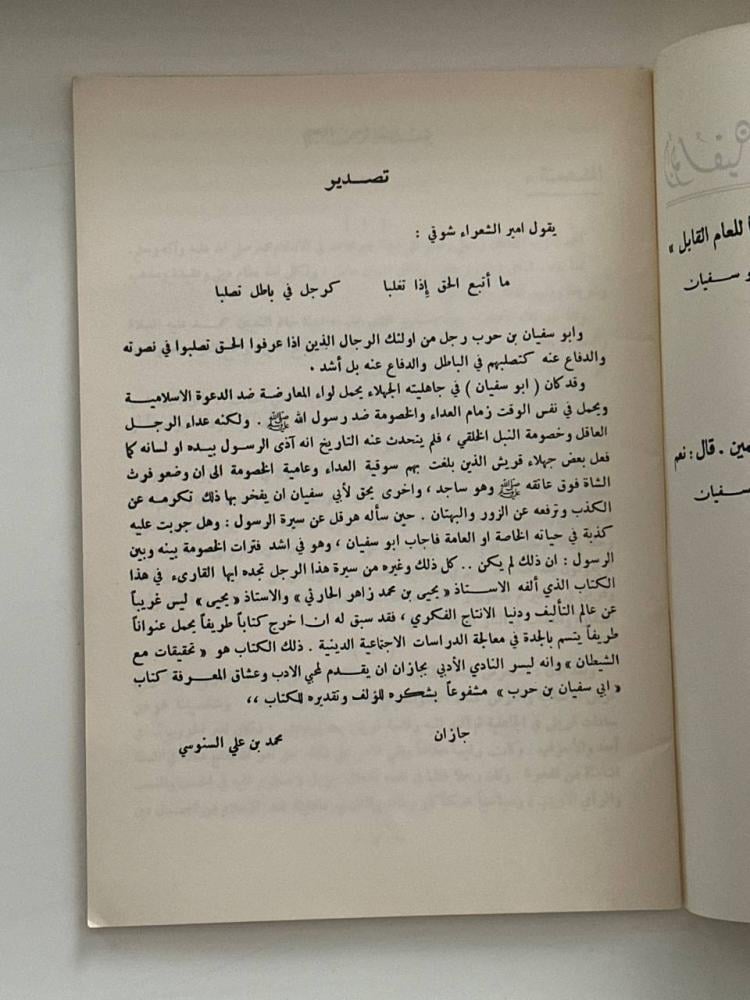 تصدير
يقول امير الشعراء شوقي :
ما أتبع الحق إذا تغلبا كرجل في باطل تصلبا
وابو سفيان بن حرب رجل من اولئك الرجال الذين اذا عرفوا الحق تصلبوا في نصرته
والدفاع عنه كتصلبهم في الباطل والدفاع عنه بل أشد .
وقد كان ( ابو سفيان ) في جاهليته الجهلاء يحمل لواء المعارضة ضد الدعوة الاسلامية
ويحمل في نفس الوقت زمام العداء والخصومة ضد رسول الله ﷺ . ولكنه عداء الرجل
العاقل وخصومة النبل الخلقي ، فلم يتحدث عنه التاريخ انه آذى الرسول بيده او لسانه كما
فعل بعض جهلاء قريش الذين بلغت بهم سوقية العداء وعامية الخصومة الى ان وضعو فوث
الشاة فوق عاتقه ﷺ وهو ساجد ، واخرى يحق لأبي سفيان ان يفخر بها ذلك تكرمه عن
الكذب وترفعه عن الزور والبهتان . حين سأله هرقل عن سيرة الرسول : وهل جربت عليه
كذبة في حياته الخاصة او العامة فاجاب ابو سفيان ، وهو في اشد فترات الخصومة بينه وبين
الرسول : ان ذلك لم يكن .. كل ذلك وغيره من سيرة هذا الرجل تجده ايها القارىء في هذا
الكتاب الذي ألفه الاستاذ « يحيى بن محمد زاهر الحارثي » والاستاذ « يحيى » ليس غريباً
عن عالم التأليف ودنيا الانتاج الفكري ، فقد سبق له ان خرج كتاباً طريفاً يحمل عنواناً
طريفاً يتسم بالجدة في معالجة الدراسات الاجتماعية الدينية . ذلك الكتاب هو « تحقيقات مع
الشيطان » وانه ليسر النادي الأدبي بجازان ان يقدم لمحبي الادب وعشاق المعرفة كتاب
« ابي سفيان بن حرب » مشفوعاً بشكره للمؤلف وتقديره للكتاب ،،
جازان محمد بن علي السنوسي
للعام القابل »
و سفيان
مين . قال : نعم
سفيان